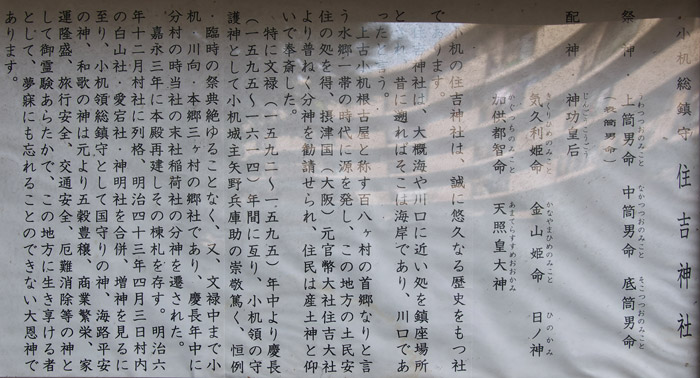 小机総鎮守 住吉神社
祭神 上筒男命 中筒男命 底筒男命
うわつつおのみこと なかつつおのみこと そこつつおのみこと
(表筒男命)
配神 神功皇后
じんぐうこうごう
気久利姫命 金山姫命 日ノ神
きくりひめのみこと かなやまひめのみこと ひのかみ
加供都智命 天照皇大神
かぐつちのみこと あまてらすすめおおかみ
小机の住吉神社は、誠に悠久なる歴史をもつ社
であります。
吉神社は、大概海や川口に近い処を鎮座場所
と 昔に遡ればそこは海岸であり、川口であ
ったと う。
上古小机根古屋と称す百八ヶ村の首郷なりと言
う水郷一帯の時代に源を発し、この地方の土民安
住の処を得、摂津国(大阪)元官幣大社住吉大社
より普ねく分神を勧請せられ、住民は産土神と仰
いで奉斎した。
特に文禄(一五九二~一五九五)年中より慶長
(一五九五~一六一四)年間に亙り、小机領の守
護神として小机城主矢野兵庫助の崇敬篤く、恒例
・臨時の祭典絶ゆることなく、又、文禄中まで小
机・川向・本郷三ヶ村の郷社であり、慶長年中に
分村の時当社の末社稲荷社の分神を遷された。
嘉永三年に本殿再建しその棟札を存す。明治六
年十二月村社に列格、明治四十三年四月三日村内
の白山社・愛宕社・神明社を合併、増神を見るに
至り、小机領総鎮守として国守りの神、海路平安
の神、和歌の神は元より五穀豊穣、商業繁栄、家
運隆盛、旅行安全、交通安全、厄難消除等の神と
して御霊験あらたかで、この地方に生き享ける者
として、夢寐にも忘れることのできない大恩神で
あります。